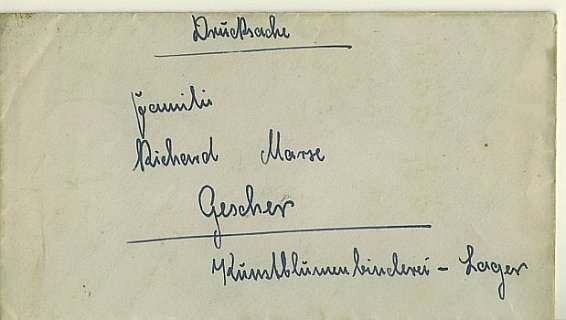 Drucksache
Familie
Richard Marse
Gescher
Kunstblumenbinderei - Lager